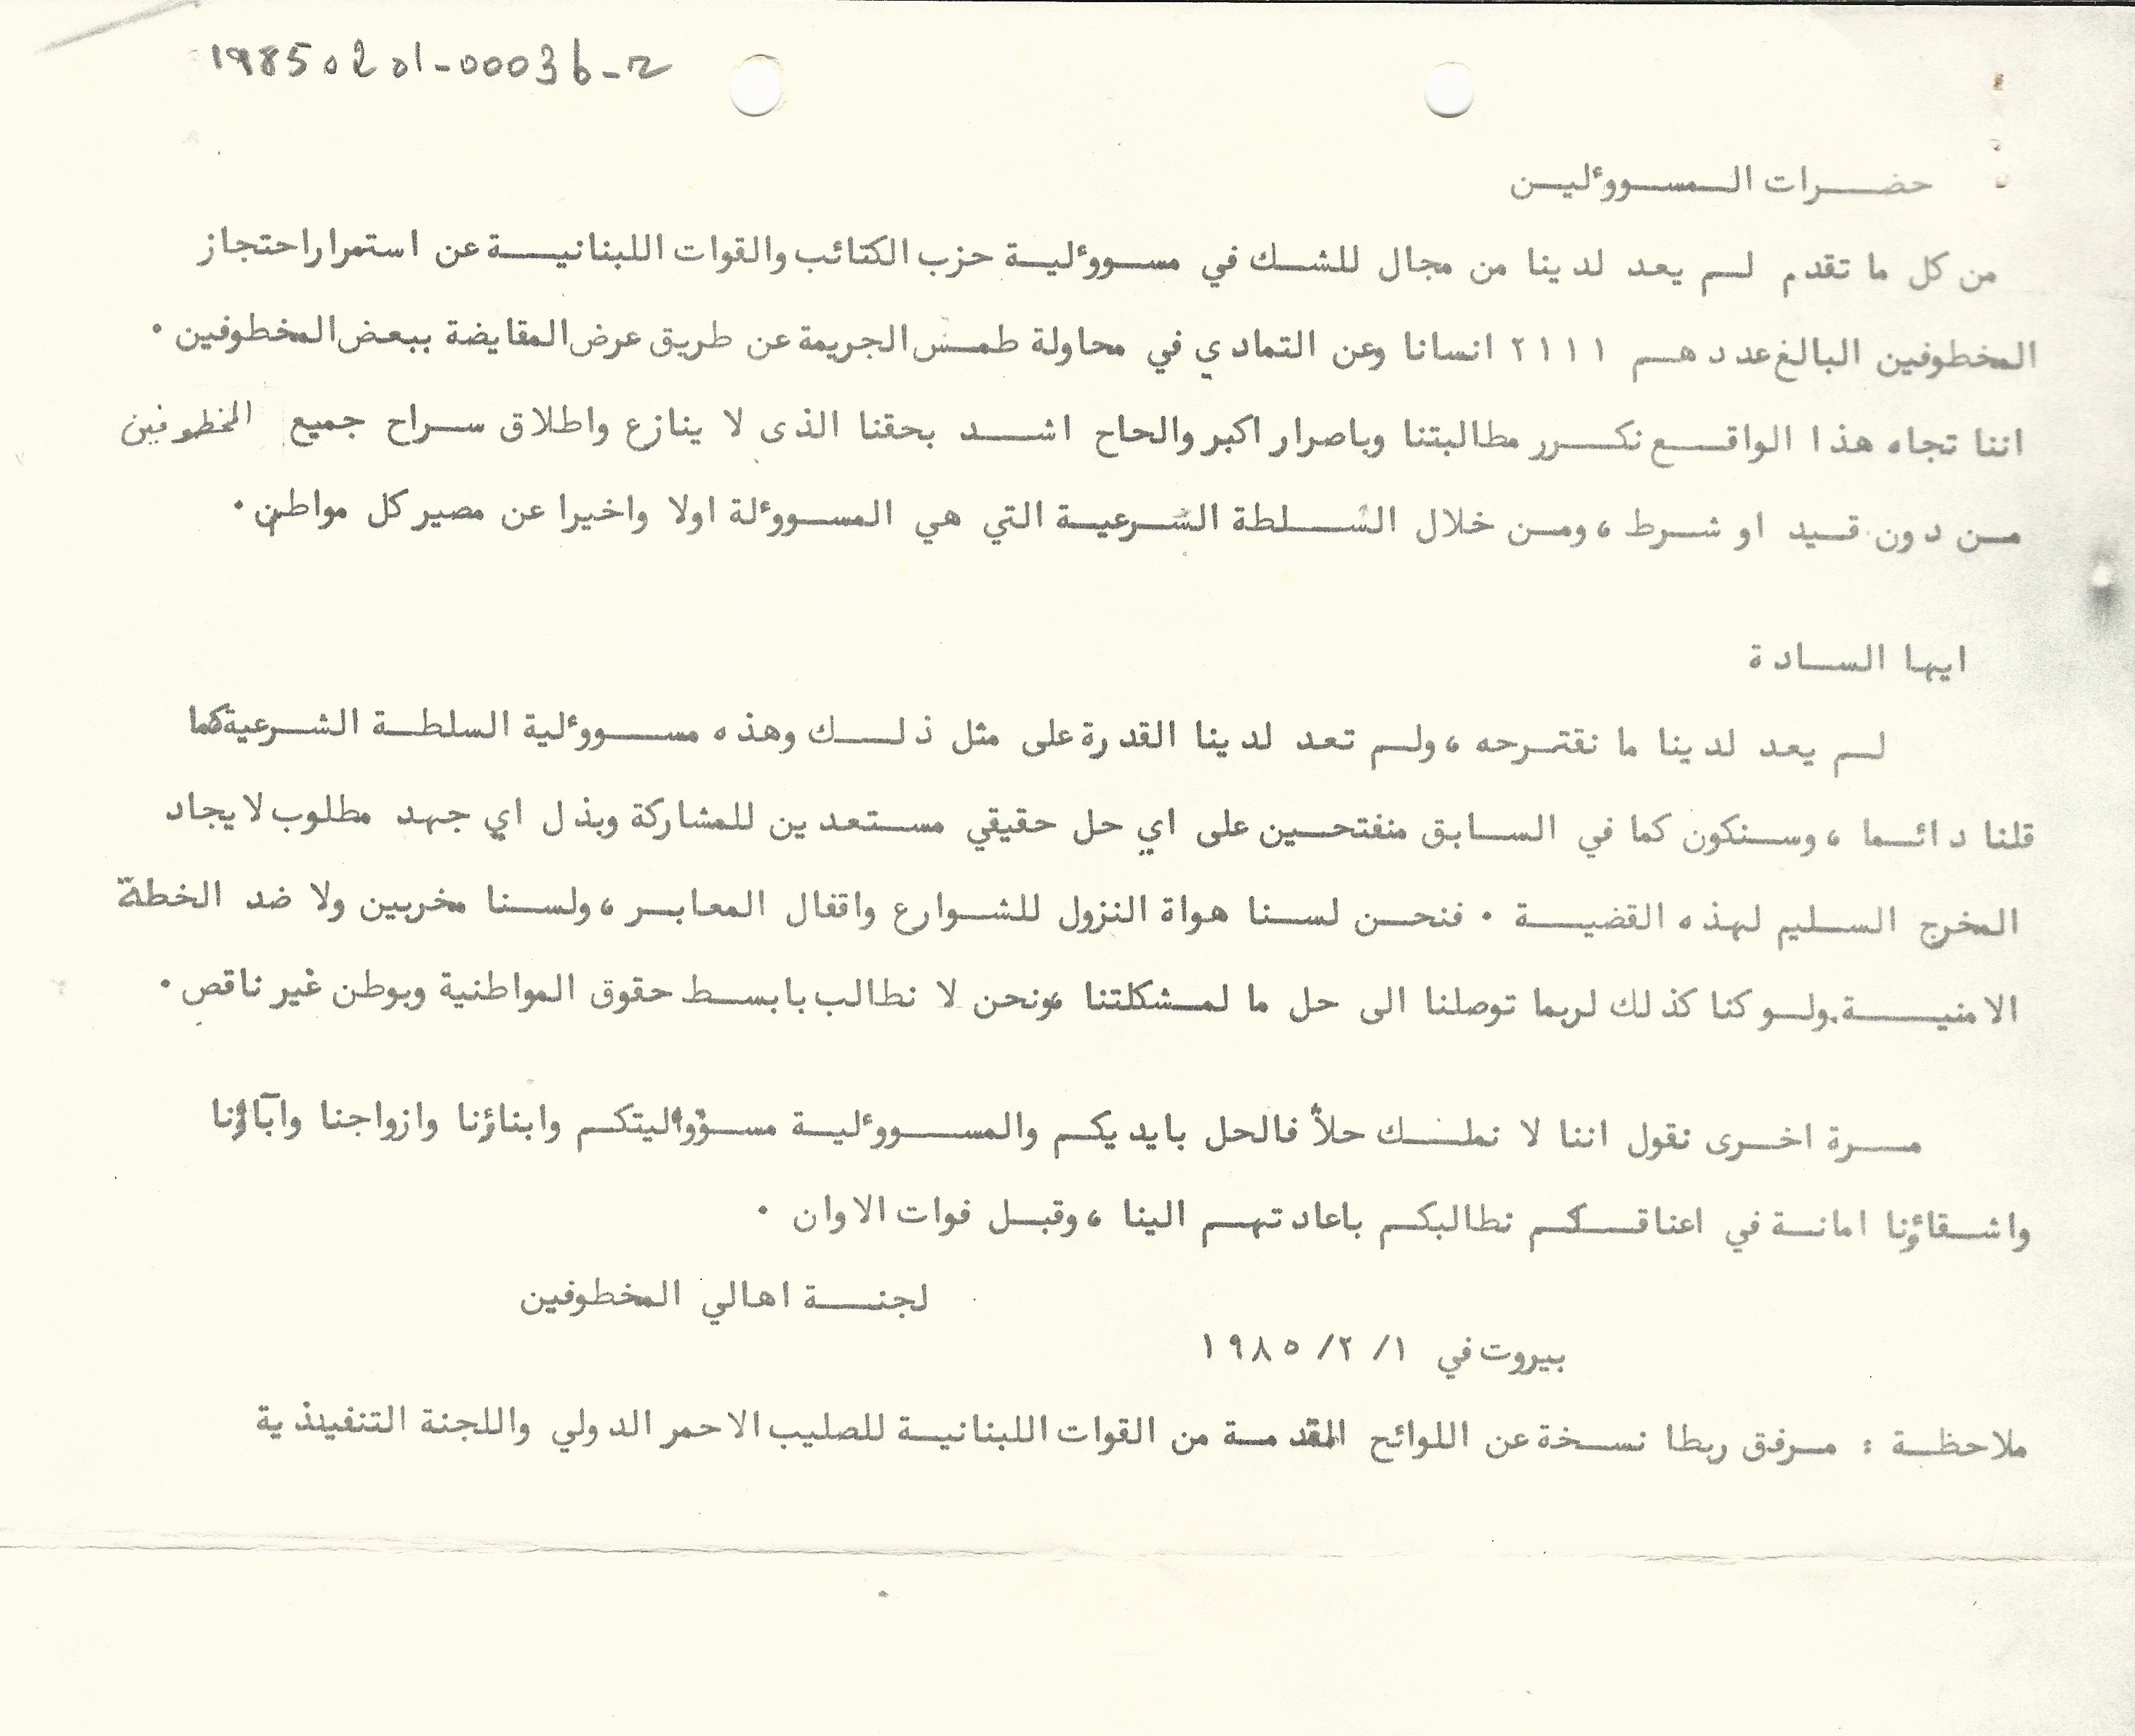 19850201-00036-2
حضرات المسوؤلين
من كل ما تقدم لم يعد لدينا من مجال للشك في مسوؤلية حزب الكتائب والقوات اللبنانية عن استمرار احتجاز
المخطوفين البالغ عددهم ٢١١١ انسانا وعن التمادي في محاولة طمس الجريمة عن طريق عرض المقايضة ببعض المخطوفين ٠
اننا تجاه هذا الواقع نكرر مطالبتنا وباصرار اكبر والحاح اشد بحقنا الذى لا ينازع واطلاق سراح جميع المخطوفين
من دون قيد او شرط ، ومن خلال السلطة الشرعية التي هي المسوؤلة اولا واخيرا عن مصير كل مواطن ٠
ايها السادة
لم يعد لدينا ما نقترحه ، ولم تعد لدينا القدرة على مثل ذلك وهذه مسوؤلية السلطة الشرعية كما
قلنا دائما ، وسنكون كما في السابق منفتحين على اي حل حقيقي مستعدين للمشاركة وبذل اي جهد مطلوب لايجاد
المخرج السليم لهذه القضية ٠ فنحن لسنا هواة النزول للشوارع واقفال المعابر ، ولسنا مخربين ولا ضد الخطة
الامنية. ولو كنا كذلك لربما توصلنا الى حل ما لمشكلتنا ، ونحن لا نطالب بابسط حقوق المواطنية وبوطن غير ناقص ٠
مرة اخرى نقول اننا لا نملك حلاً فالحل بايديكم والمسوؤلية مسؤوليتكم وابناؤنا وازواجنا وآباؤنا
واشقاؤنا امانة في اعناقكم نطالبكم باعادتهم الينا ، وقبل فوات الاوان ٠
لجنة اهالي المخطوفين
بيروت في ١/ ٢/ ١٩٨٥
ملاحظة : مرفق ربطا نسخة عن اللوائح المقدمة من القوات اللبنانية للصليب الاحمر الدولي واللجنة التنفيذية